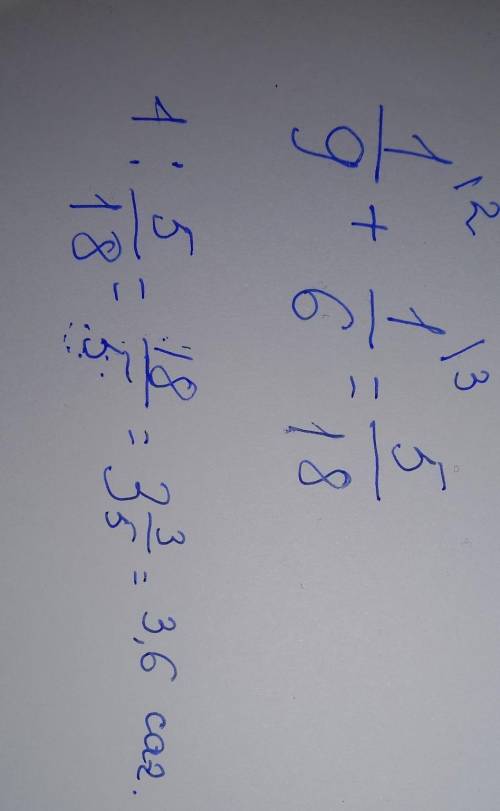 1/9\2 + 1/6\3 = 5/18
1 : 5/18 = 18/5 = 3 3/5 = 3,6 саг.